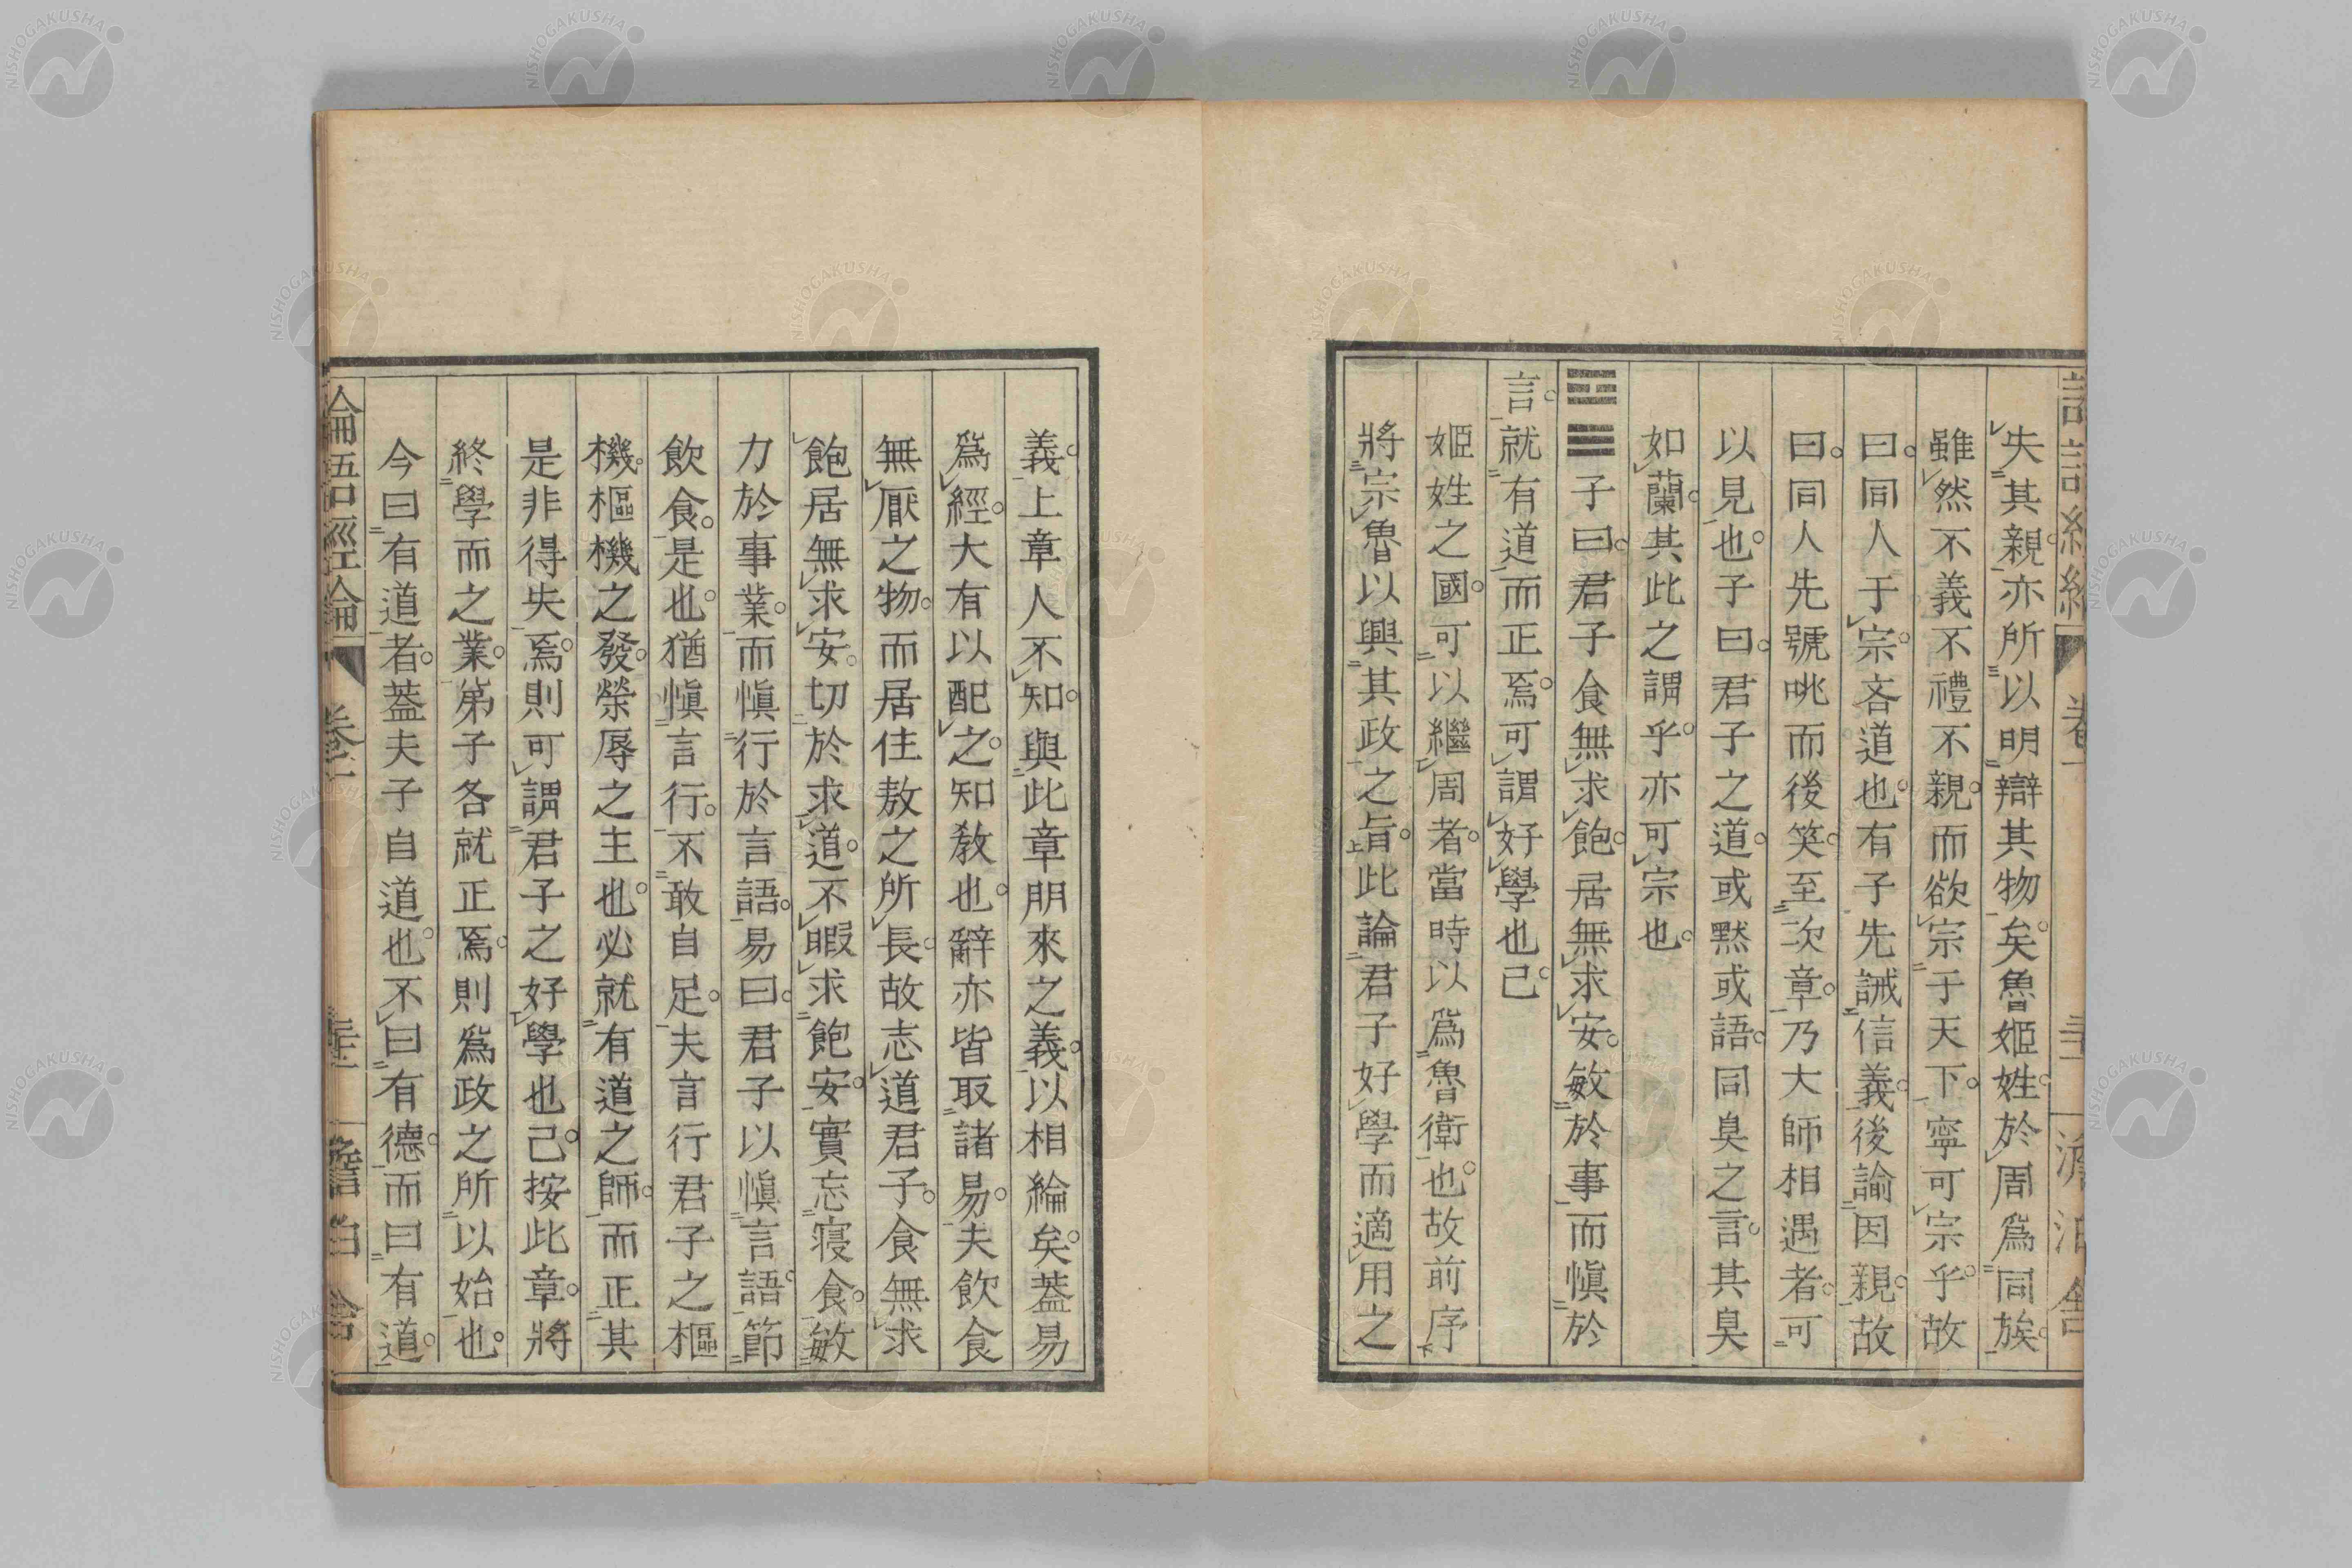 失其親亦所以明辯其物矣。魯姬姓。於周爲同族。
雖然不義不禮不親。而欲宗于天下。寧可宗乎。故
曰。同人于宗。吝道也。有子先誡信義。後諭因親。故
曰。同人先號咷而後笑。至次章。乃大師相遇者。可
以見也。子曰。君子之道。或默或語。同臭之言。其臭
如蘭。其此之謂乎。亦可宗也。
䷍子曰。君子食無求飽。居無求安。敏於事而愼於
言。就有道而正焉。可謂好學也已。
姬姓之國。可以繼周者。當時以爲魯衛也。故前序
將宗魯以興其政之旨。此論君子好學而適用之
義。上章人不知。與此章朋來之義。以相綸矣。蓋易
爲經。大有以配之。知敎也。辭亦皆取諸易。夫飲食
無厭之物。而居住敖之所長。故志道君子。食無求
飽居無求安。切於求道。不暇求飽安。實忘寝食。敏
力於事業。而愼行於言語。易曰。君子以愼言語。節
飲食。是也。猶愼言行。不敢自足。夫言行君子之樞
機。樞機之發。榮辱之主也。必就有道之師。而正其
是非得失焉。則可謂君子之好學也已。按此章。將
終學而之業。弟子各就正焉。則爲政之所以始也。
今曰有道者。蓋夫子自道也。不曰有德。而曰有道。
論語經論